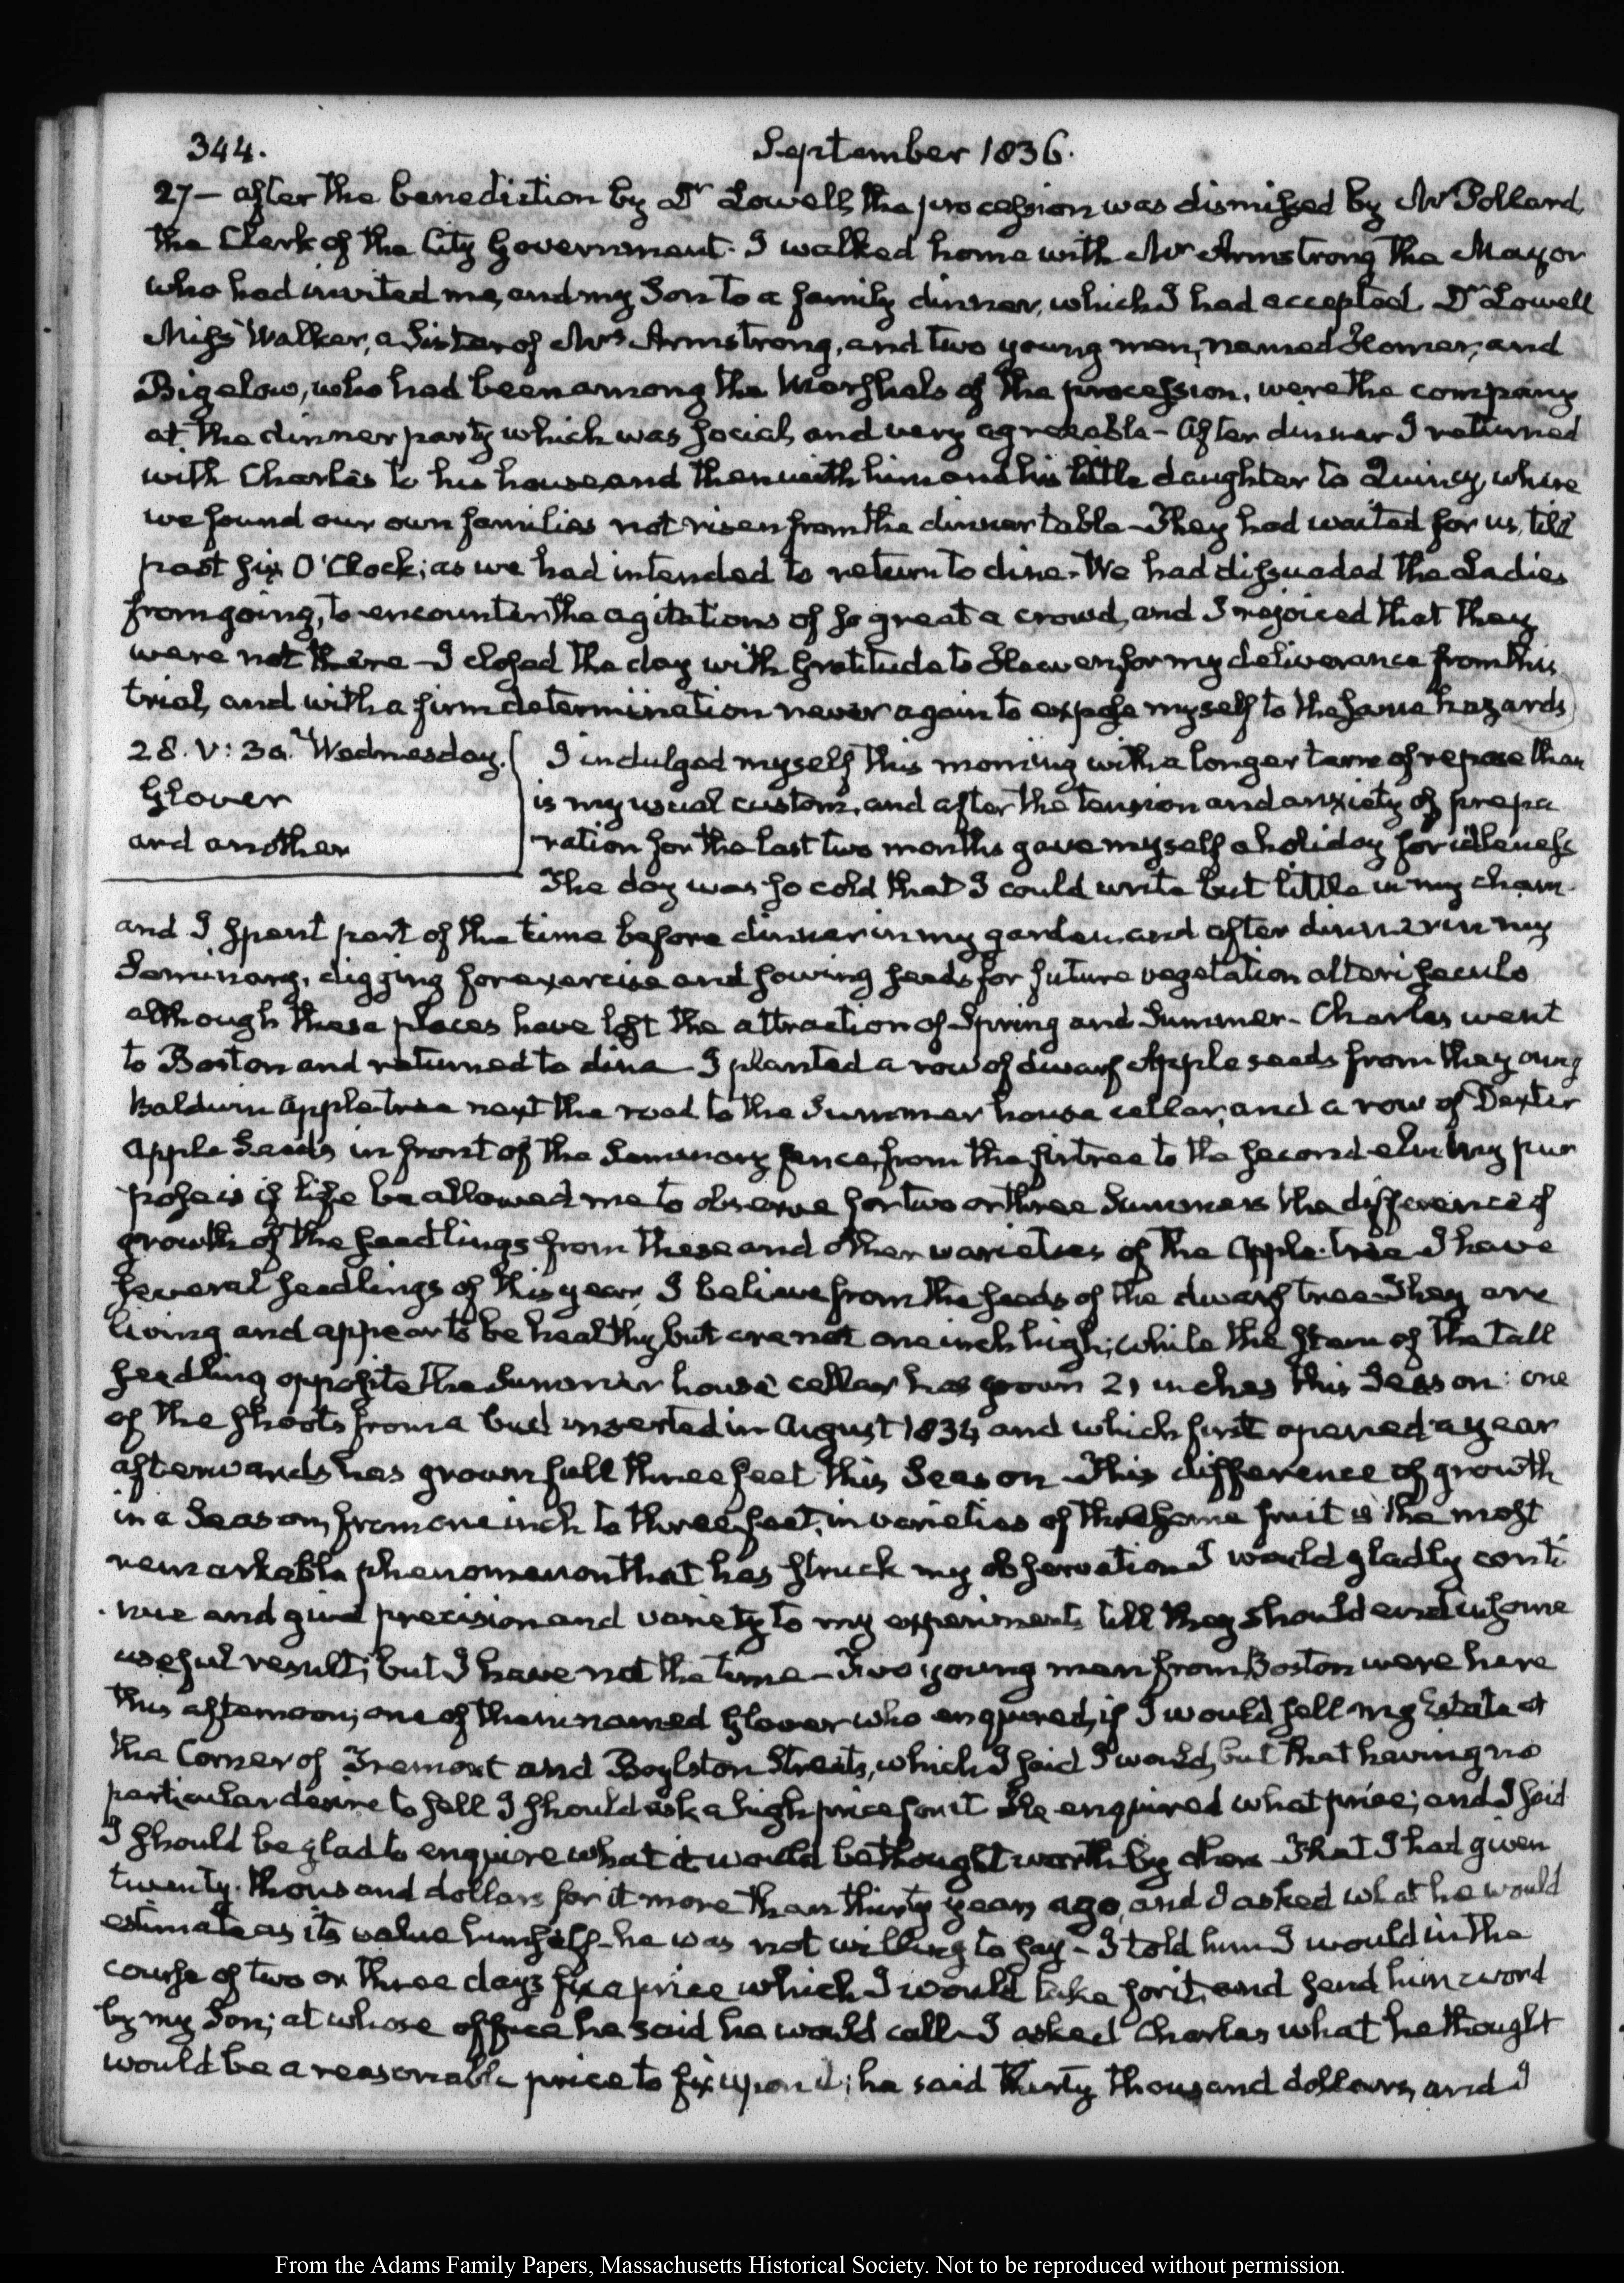 344.
September 1836.
27 — after the benediction by Dr Lowell, the procession was dismissed by Mr Pollard,
the Clerk of the City Government. I walked home with Mr Armstrong the Mayor
who had invited me, and my Son to a family dinner, which I had accepted. Dr Lowell
Miss Walker, a Sister of Mrs Armstrong, and two young men, named Homer, and
Bigelow, who had been among the Marshals of the procession, were the company
at the dinner party which was social, and very agreeable — After dinner I returned
with Charles to his house, and then with him and his little daughter to Quincy, where
we found our own families not risen from the dinner table — They had waited for us, till
past six O'Clock; as we had intended to return to dine. We had dissuaded the Ladies
from going, to encounter the agitations of so great a crowd, and I rejoiced that they
were not there — I closed the day with gratitude to Heaven for my deliverance from this
trial, and with a firm determination never again to expose myself to the same hazards
28. V: 30. Wednesday.
Glover
and another
I indulged myself this morning with a longer term of repose than
is my usual custom, and after the tension and anxiety of prepa
ration for the last two months gave myself a holiday for idleness
The day was so cold that I could write but little in my cham.
and I spent part of the time before dinner in my garden, and after dinner in my
Seminary, digging for exercise and sowing seeds for future vegetation alteri seculo
although these places have lost the attraction of Spring and Summer — Charles went
to Boston and returned to dine — I planted a row of dwarf Apple seeds from the young
Baldwin apple-tree next the road to the Summer house cellar, and a row of Dexter
apple Seeds in front of the Seminary fence, from the firtree to the second elm. My pur
pose is if life be allowed me to observe for two or three Summers the difference of
growth of the seedlings from these and other varieties of the Apple-tree I have
several seedlings of this year, I believe from the seeds of the dwarf tree — They are
living and appear to be healthy, but are not one inch high; while the stem of the tall
seedling opposite the Summer house cellar has grown 21 inches this Season: one
of the shoots from a bud inserted in August 1834 and which first opened a year
afterwards has grown full three feet this Season — This difference of growth
in a Season, from one inch to three feet, in varieties of the same fruit is the most
remarkable phenomenon that has struck my observation I would gladly conti
nue and give precision and variety to my experiments till they should end in some
useful result; but I have not the time — Two young men from Boston were here
this afternoon; one of them named Glover who enquired, if I would sell my Estate at
the Corner of Tremont and Boylston Streets, which I said I would, but that having no
particular desire to sell I should ask a high price for it He enquired what price; and I said
I should be glad to enquire what it would be thought worth by others — That I had given
twenty thousand dollars for it more than thirty years ago, and I asked what he would
estimate as its value himself — he was not willing to say — I told him I would in the
course of two or three days fix a price which I would take for it, and send him word
by my Son; at whose office he said he would call — I asked Charles what he thought
would be a reasonable price to fix upon it; he said thirty thousand dollars, and I
From the Adams Family Papers, Massachusetts Historical Society. Not to be reproduced without permission.